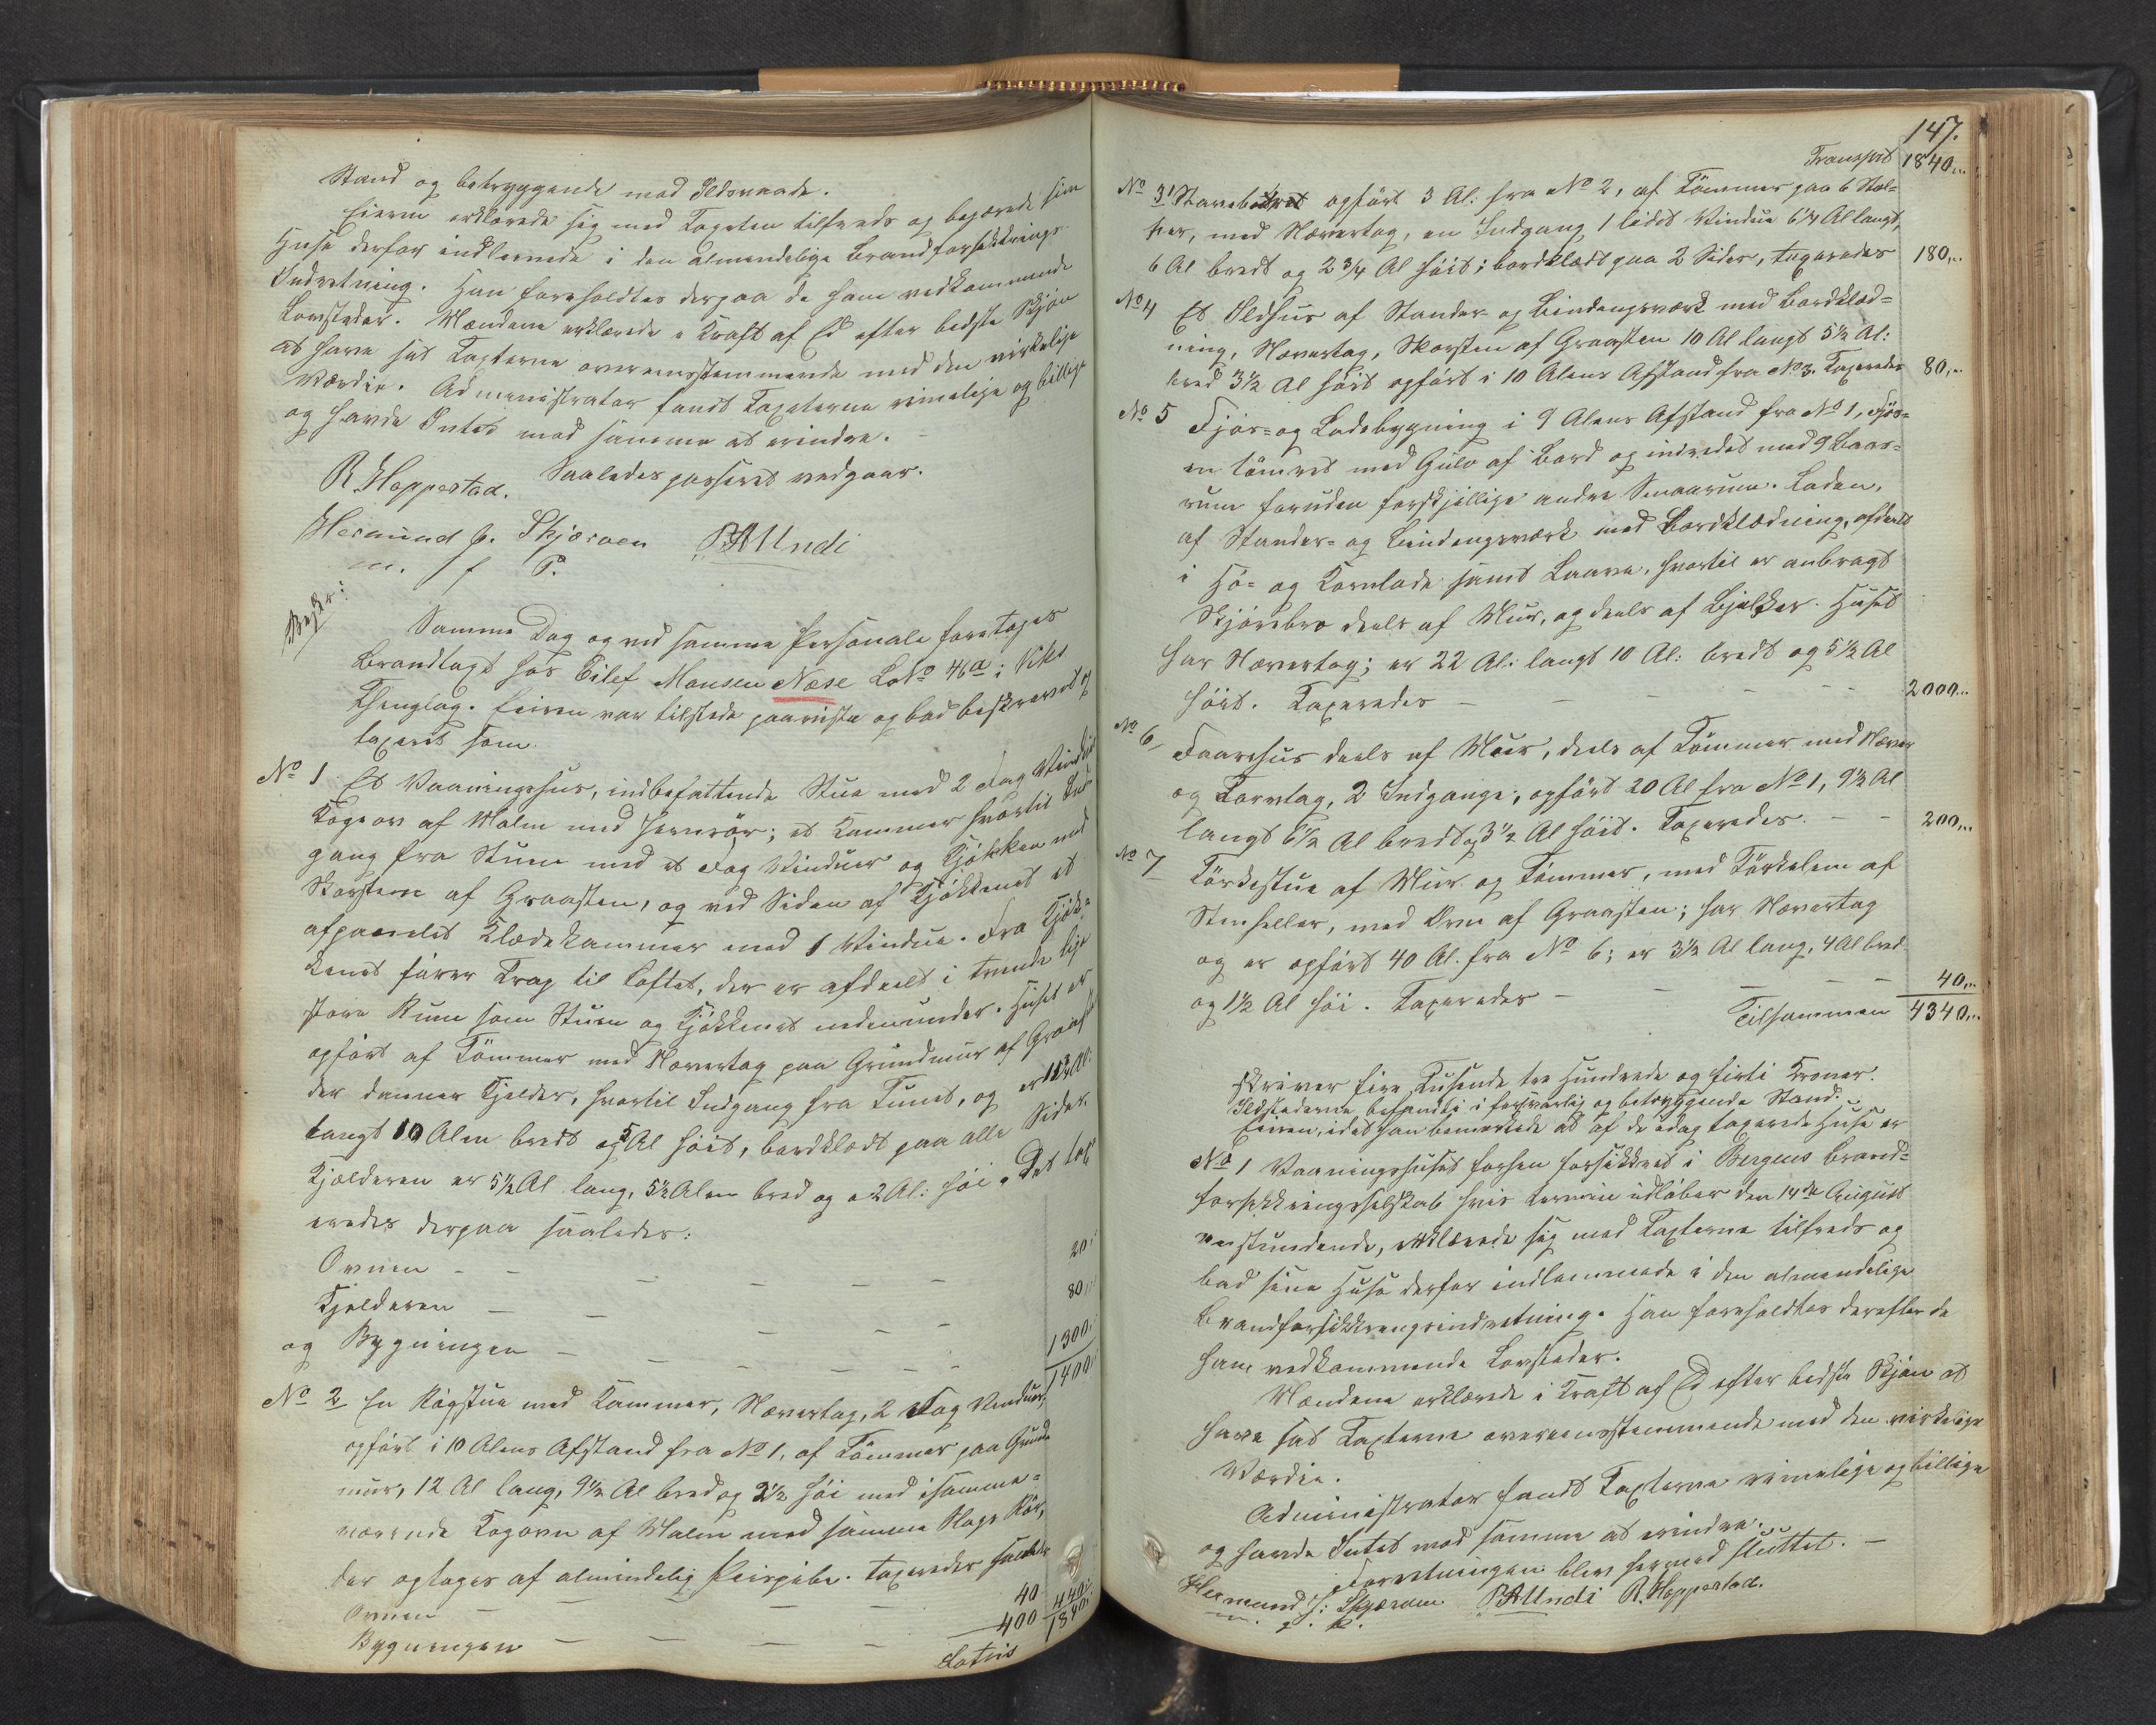 Stand og betryggende mod Ildsvaade.
Eieren erklærede sig med Taxten tilfreds og begjærede sine
Huse derfor indlemmede i den almindelige Brandforsikkrings
Indretning. Han foreholdtes derpaa de ham vedkommende
Lovsteder. Mændene erklærede i Kraft af Ed efter bedste Skjøn
at have sat Taxterne overensstemmende med den virkelige
Værdie. Administrator fandt Taxterne rimelige og billige
og havde Intet mod samme at erindre. -
Saaledes passeret vedgaar.
R. Hoppestad.
Hermund J. Skjørven BAUndi
m. f P.
Samme Dag og ved samme Personale foretoges
Brandtaxt hos Eilef Monsen Næse LNo 46a i Viks
Thinglag. Eieren var tilstede paaviste og bad beskrevet og
taxeret som
No 1 Et Vaaningshus, indbefattende Stue med 2 Fag Vinduer
Kogeovn af Malm med Jernrør; et Kammer hvortil Ind-
gang fra Stuen med et Fag Vinduer og Kjøkken med
Skorsten af Graasten, og ved Siden af Kjøkkenet et
afpanelet Klædekammer med 1 Vindue. Fra Kjøk-
kenet fører Trap til Loftet, der er afdeelt i tvende lige
store Rum som Stuen og Kjøkkenet nedenunder. Huset er
opført af Tømmer med Nævertag paa Grundmur af Graasten
der danner Kjelder, hvortil Indgang fra Tunet, og er 13 Al:
langt 10 Alen bredt og 5 Al høit, bordklædt paa alle Sider.
Kjælderen er 5½ Al lang, 5½ Alen bred og 2 Al: høi. Det tax-
eredes derpaa saaledes:
Ovnen - - - - - - 20
Kjelderen - - - - - 80
og Bygningen - - - - - 1300
1400
No 2 En Røgstue med Kammer, Nævertag, 2 Fag Vinduer,
opført i 10 Alens Afstand fra No 1, af Tømmer paa Grund-
mur, 12 Al lang, 9½ Al bred og 3½ høi med isamme-
værende Kogovn af Malm med samme Slags Rør,
der optages af almindelig Peispibe. Taxeredes saaledes
Ovnen - - - - - 40
Bygningen - - - - 400 440
Latris 1840
147.
Transport 1840...
No 3 Staveburet opført 3 Al: fra No 2, af Tømmer paa 6 Stol-
per, med Nævertag, en Indgang 1 lidet Vindue 6¼ Al langt,
6 Al bredt og 2¾ Al høit; bordklædt paa 2 Sider, taxeredes 180...
No 4 Et Ildhus af Stander- og Bindingsværk med Bordklæd-
ning, Nævertag, Skorsten af Graasten 10 Al langt 5½ Al:
bred 3½ Al høit opført i 10 Alens Afstand fra No 3. Taxeredes 80...
No 5 Fjøs- og Ladebygning i 9 Alens Afstand fra No 1, Fjøs-
en tømret med Gulv af Bord og indredet med 9 Baas-
rum foruden forskjellige andre Smaarum. Laden,
af Stander- og Bindingsværk med Bordklædning, afdeelt
i Hø- og Kornlade samt Laave, hvortil er anbragt
Kjørebro deels af Mur, og deels af Bjelker. Huset
har Nævertag; er 22 Al: langt 10 Al: bredt og 5½ Al
høit. Taxeredes - - - - - 2000...
No 6 Faarehus deels af Muur, deels af Tømmer med Næver
og Torvtag, 2 Indgange, opført 20 Al fra No 1, 9½ Al
langt 6½ Al bredt og 3½ Al høit. Taxeredes. - - 200...
No 7 Tørkestue af Muur og Tømmer, med Tørkelem af
Stenheller, med Ovn af Graasten; har Nævertag
og er opført 40 Al. fra No 6; er 3½ Al lang, 4 Al bred
og 1½ Al høi. Taxeredes - - - - 40...
Tilsammen 4340...
skriver fire Tusende tre Hundrede og firti Kroner.
Ildstederne befandtes i forsvarlig og betryggende Stand.
Eieren, idet han bemærkede at af de idag taxerede Huse er
No 1 Vaaningshuset forhen forsikkret i Bergens Brand-
forsikkringsselskab hvis termin udløber den 14de August
anstundende, erklærede sig med Taxterne tilfreds og
bad sine Huse derfor indlemmede i den almindelige
Brandforsikkringsindretning. Han foreholdtes derefter de
ham vedkommende Lovsteder.
Mændene erklærede i Kraft af Ed efter bedste Skjøn at
have sat Taxterne overensstemmende med den virkelige
Værdie.
Administrator fandt Taxterne rimelige og billige
og havde Intet mod samme at erindre.
Forretningen blev hermed sluttet. -
Hermund J: Skjørven BAUndi R. Hoppestad.
m. f. P.